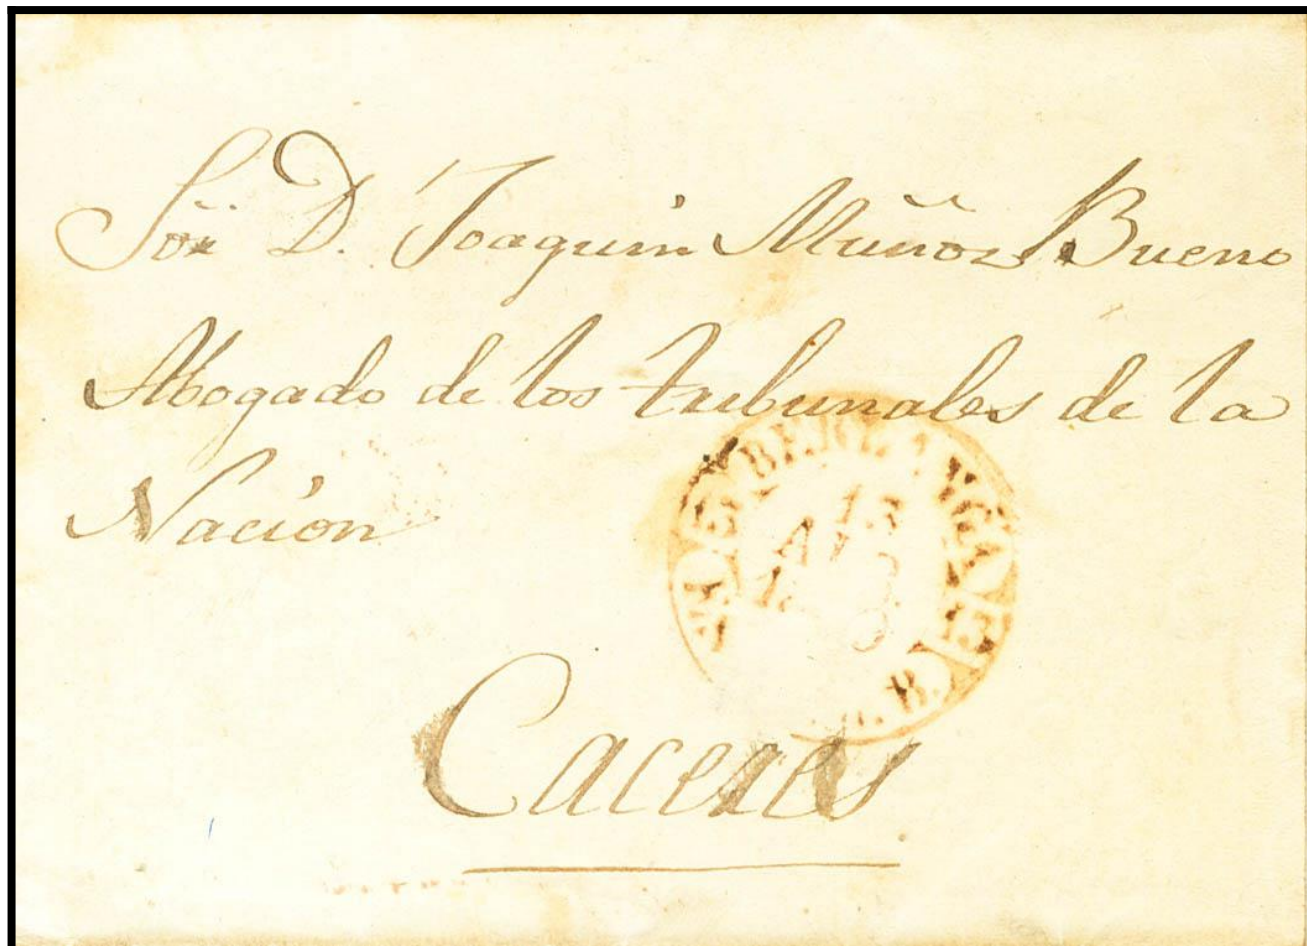 Sor. D. Joaquin Muñoz Bueno
Abogado de los tribunales de la
Nación
Caceres